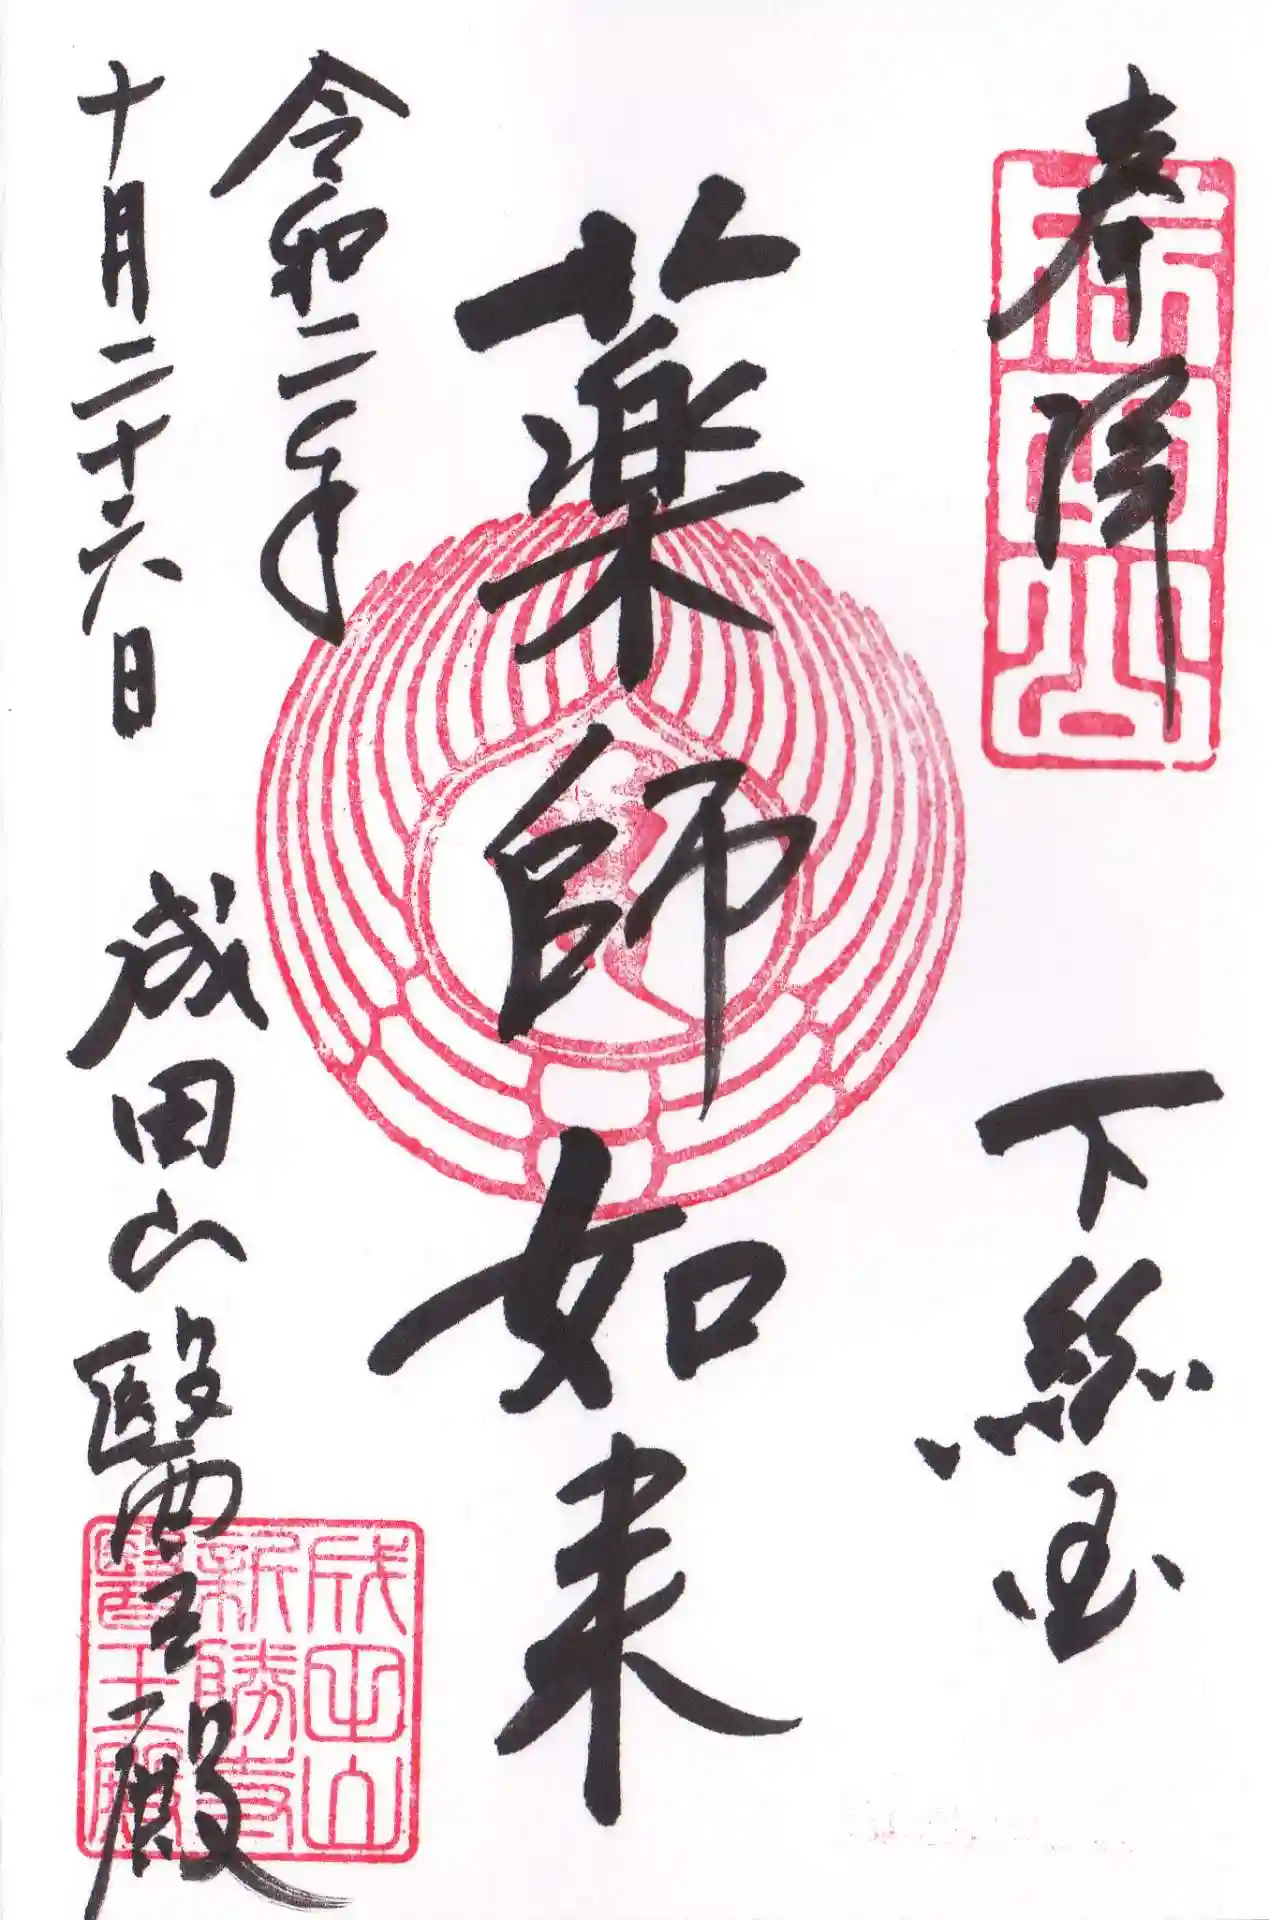 奉拝
下総国
薬師如来
令和二年
十月二十六日
成田山醫王殿
成田山
新勝寺
醫王殿